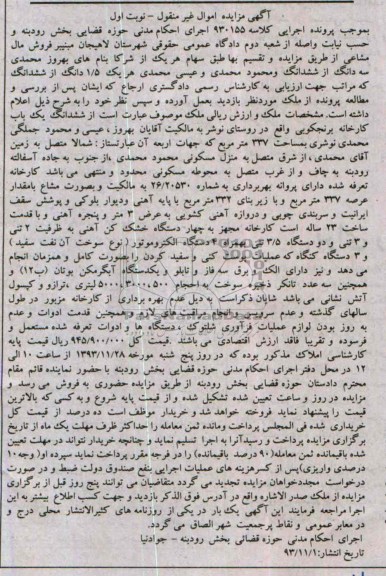 آگهی مزایده اموال غیر منقول - نوبت اول
بموجب پرونده اجرایی کلاسه ۹۳۰۱۵۵ اجرای احکام مدنی حوزه قضایی بخش رودبنه و
حسب نیابت واصله از شعبه دوم دادگاه عمومی حقوقی شهرستان لاهیجان مبنی بر فروش مال
مشاعی از طریق مزایده و تقسیم بها طبق سهام هر یک از شرکا بنام های بهروز محمدی
سه دانگ از ششدانگ ومحمود محمدی و عیسی محمدی هر یک ۱/۵ دانگ از ششدانگ
که مراتب جهت ارزیابی به کارشناس رسمی دادگستری ارجاع که ایشان پس از بررسی و
مطالعه پرونده از ملک موردنظر بازدید بعمل آورده و سپس نظر خود را به شرح ذیل اعلام
داشته است. مشخصات ملک و ارزش ریالی ملک موصوف عبارت است از ششدانگ یک باب
کارخانه برنجکوبی واقع در روستای نوشر به مالکیت آقایان بهروز ، عیسی و محمود جملگی
محمدی نوشری بمساحت ۳۳۷ متر مربع که جهات اربعه آن عبارتستاز : شمالا متصل به زمین
آقای محمدی ، از شرق متصل به منزل مسکونی محمود محمدی ،از جنوب به جاده آسفالته
رودبنه به چاف و از غرب متصل به محوطه مسکونی محدود و منتهی می باشد کارخانه
تعرفه شده دارای پروانه بهره برداری به شماره ۲۶/۲۰۵۳۰ به مالکیت و بصورت مشاع بامقدار
عرصه ۳۳۷ متر مربع و با زیر بنای ۳۳۲ متر مربع با پایه آهنی ودیوار بلوکی و پوشش سقف
ایرانیت و سربندی چوبی و دروازه آهنی کشویی به عرض ۳ متر و پنجره آهنی و با قدمت
ساخت ۲۳ ساله است کارخانه مجهز به چهار دستگاه خشک کن آهنی به ظرفیت ۲ تنی
و ۳ تنی و دو دستگاه ۳/۵ تنی بهمراه دستگاه الکتروموتور ( نوع سوخت آن نفت سفید )
و ۳ دستگاه که عملیات کنی و سفید کردن را بصورت کامل و همزمان انجام
می دهد و نیز دارای برق سه فاز و تابلو و یکدستگاه آبگرمکن بوتان (ب۱۲) و
همچنین سه عدد تانکر ذخیره سوخت به احجام ۵۰۰۰ لیتری ،ترازو و کپسول
آتش نشانی می باشد شایان ذکر است به دلیل عدم بهره برداری از کارخانه مزبور در طول
سالهای گذشته و عدم سرویس و انجام مراقبت های لازم و همچنین قدمت ادوات و عدم
به روز بودن لوازم عملیات فرآوری شلتوک ، دستگاه ها و ادوات تعرفه شده مستعمل و
فرسوده و تقریبا فاقد ارزش اقتصادی می باشند .قیمت کل ۹۴۵/۹۰۰/۰۰۰ ریال قیمت پایه
کارشناسی املاک مذکور بوده که در روز پنج شنبه مورخه ۱۳۹۳/۱۱/۲۸ از ساعت ۱۰ الی
۱۲ در محل دفتر اجرای احکام مدنی حوزه قضایی بخش رودبنه با حضور نماینده قائم مقام
محترم دادستان حوزه قضایی بخش رودبنه از طریق مزایده حضوری به فروش می رسد و
مزایده در روز و ساعت تعیین شده تشکیل شده و از قیمت پایه شروع و به کسی که بالاترین
قیمت را پیشنهاد نماید فروخته خواهد شد و خریدار موظف است ده درصد از قیمت کل
خریداری شده فی المجلس پرداخت ومانده ثمن معامله را حداکثر ظرف مهلت یک ماه از تاریخ
برگزاری مزایده پرداخت و رسیدآنرا به اجرا تسلیم نماید و چنانچه خریدار نتواند در مهلت تعیین
شده باقیمانده ثمن معامله(۹۰ درصد باقیمانده) را در فرجه مقرر پرداخت نماید سپرده او( وجه ۱۰
درصدی واریزی)پس از کسر هزینه های عملیات اجرایی بنفع صندوق دولت ضبط و در صورت
درخواست مجددخواهان مزایده تجدید می گردد متقاضیان می توانند پنج روز قبل از برگزاری
مزایده از ملک صدر الاشاره واقع در آدرس فوق الذکر بازدید و جهت کسب اطلاع بیشتر به این
اجرا مراجعه فرمایند این آگهی یک بار در یکی از روزنامه های کثیرالانتشار محلی درج و
در معابر عمومی و نقاط پرجمعیت شهر الصاق می گردد.
اجرای احکام مدنی حوزه قضائی بخش رودبنه - جوادنیا
تاریخ انتشار:۹۳/۱۱/۱